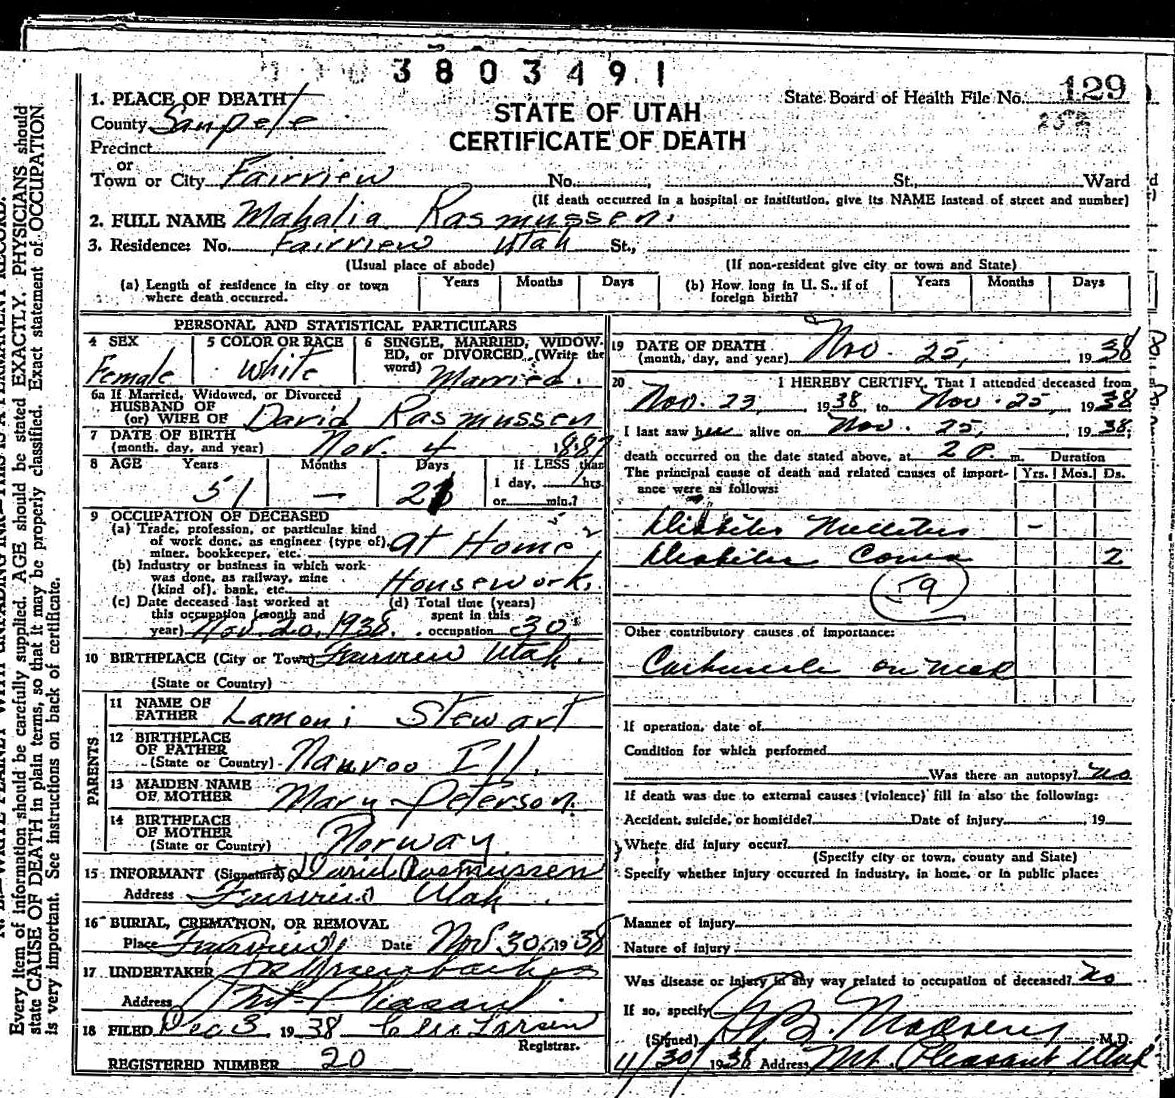 3803491
1. PLACE OF DEATH
STATE OF UTAH
CERTIFICATE OF DEATH
State Board of Health File No. 129
County Sanpete
Precinct
or
Town or City Fairview No. , St., Ward
(If death occurred in a hospital or institution, give its NAME instead of street and number)
2. FULL NAME Mahalia Rasmussen.
3. Residence: No. Fairview Utah St.,
(Usual place of abode) (If non-resident give city or town and State)
(a) Length of residence in city or town where death occurred. Years Months Days
(b) How long in U. S., if of foreign birth? Years Months Days
PERSONAL AND STATISTICAL PARTICULARS
4 SEX Female
5 COLOR OR RACE White
6 SINGLE, MARRIED, WIDOWED, or DIVORCED (Write the word) Married.
6a If Married, Widowed, or Divorced
HUSBAND OF
(or) WIFE OF David Rasmussen
7 DATE OF BIRTH
(month, day, and year) Nov. 4 1887
8 AGE Years Months Days If LESS than
51 — 1 day, hrs.
or min.?
9 OCCUPATION OF DECEASED
(a) Trade, profession, or particular kind of work done, as engineer (type of), miner, bookkeeper, etc. at Home
(b) Industry or business in which work was done, as railway, mine (kind of), bank, etc. Housework.
(c) Date deceased last worked at this occupation (month and year) Nov. 20, 1938.
(d) Total time (years) spent in this occupation 30
10 BIRTHPLACE (City or Town) Fairview Utah.
(State or Country)
PARENTS
11 NAME OF FATHER Lamoni Stewart
12 BIRTHPLACE OF FATHER
(State or Country) Nauvoo Ill.
13 MAIDEN NAME OF MOTHER Mary Peterson.
14 BIRTHPLACE OF MOTHER
(State or Country) Norway.
15 INFORMANT (Signature) David Rasmussen
Address Fairview Utah
16 BURIAL, CREMATION, OR REMOVAL
Place Fairview Date Nov 30, 1938
17 UNDERTAKER
Address Mt. Pleasant.
18 FILED Dec 3 1938 Larsen
Registrar.
REGISTERED NUMBER 20
19 DATE OF DEATH
(month, day, and year) Nov. 25, 1938
20 I HEREBY CERTIFY, That I attended deceased from
Nov. 23, 1938 to Nov. 25, 1938
I last saw her alive on Nov. 25, 1938;
death occurred on the date stated above, at 2 P m. Duration
The principal cause of death and related causes of importance were as follows: Yrs. Mos. Ds.
Diabites Mellitus -
Diabites Coma 2
59
Other contributory causes of importance:
Carbuncle on neck
If operation, date of
Condition for which performed
Was there an autopsy? no
If death was due to external causes (violence) fill in also the following:
Accident, suicide, or homicide? Date of injury 19
Where did injury occur?
(Specify city or town, county and State)
Specify whether injury occurred in industry, in home, or in public place:
Manner of injury
Nature of injury
Was disease or injury in any way related to occupation of deceased? no
If so, specify
(Signed) Madsen M.D.
11/30/1938 Address Mt. Pleasant, Utah
Every item of information should be carefully supplied. AGE should be stated EXACTLY. PHYSICIANS should
state CAUSE OF DEATH in plain terms, so that it may be properly classified. Exact statement of OCCUPATION
is very important. See instructions on back of certificate.